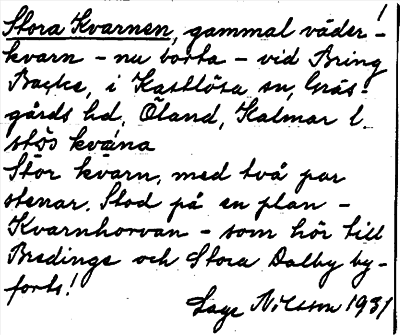 Stora Kvarnen, gammal väder-
kvarn - nu borta - vid Bring
Backe, i Kastlösa sn, Gräs-
gårds hd, Öland, Kalmar l.
stōs kvána
Stor kvarn, med två par
stenar. Stod på en plan -
Kvarnhorvan - som hör till
Bredinge och Stora Dalby by-
forts!
Sage Nilsson 1931